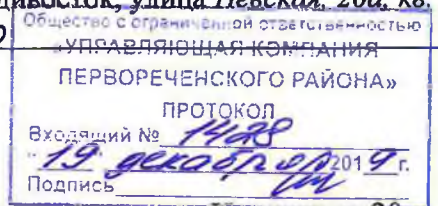 дивосток, улица Невская, 20а, кв.
Общество с ограниченной ответственностью
«УПРАВЛЯЮЩАЯ КОМПАНИЯ
ПЕРВОРЕЧЕНСКОГО РАЙОНА»
ПРОТОКОЛ
Входящий № 1428
"19" декабря 2019 г.
Подпись